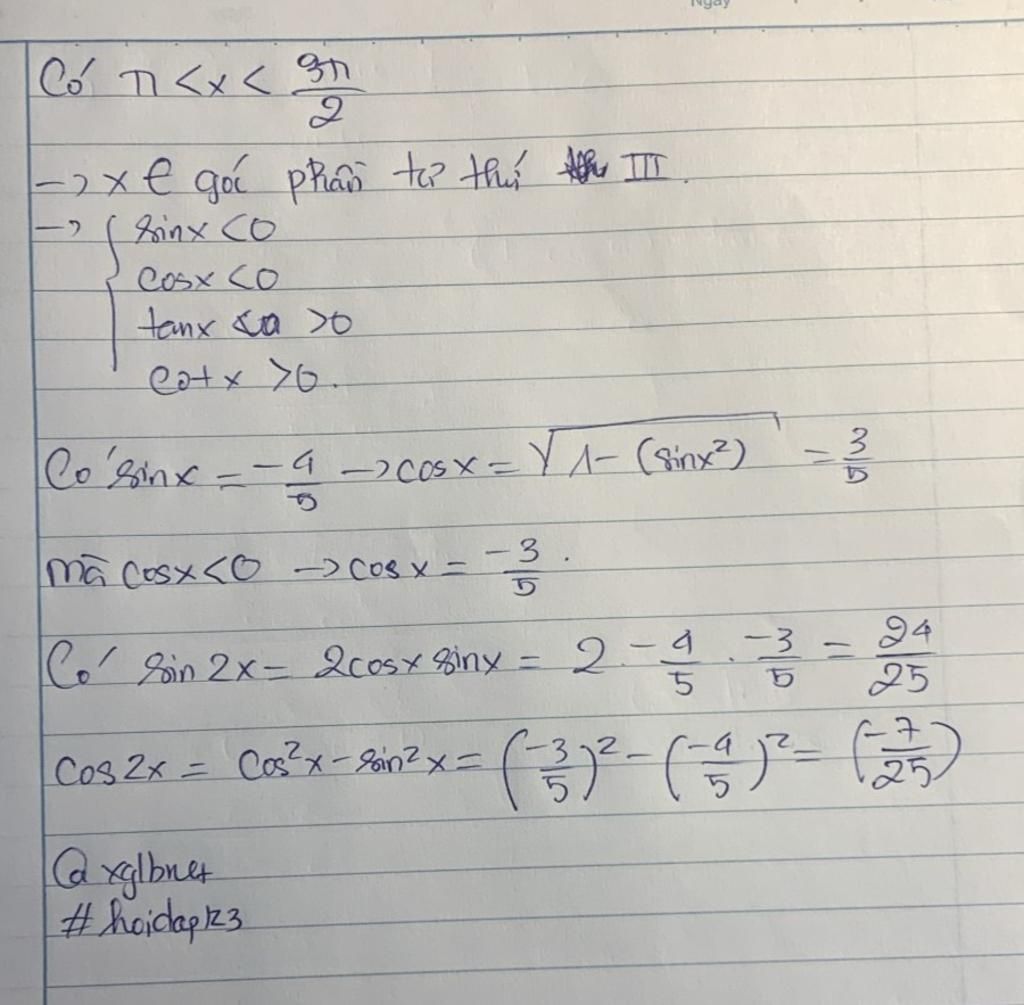 Ngày
Có π < x < 3π/2
→ x ∈ góc phần tư thứ III.
→ { sinx < 0
cosx < 0
tanx > 0
cotx > 0.
Có sinx = -4/5 → cosx = √(1 - (sinx²)) = 3/5
mà cosx < 0 → cosx = -3/5.
Có sin2x = 2cosx sinx = 2 . -4/5 . -3/5 = 24/25
cos2x = cos²x - sin²x = (-3/5)² - (-4/5)² = (-7/25)
@xglbnet
#hoidap123